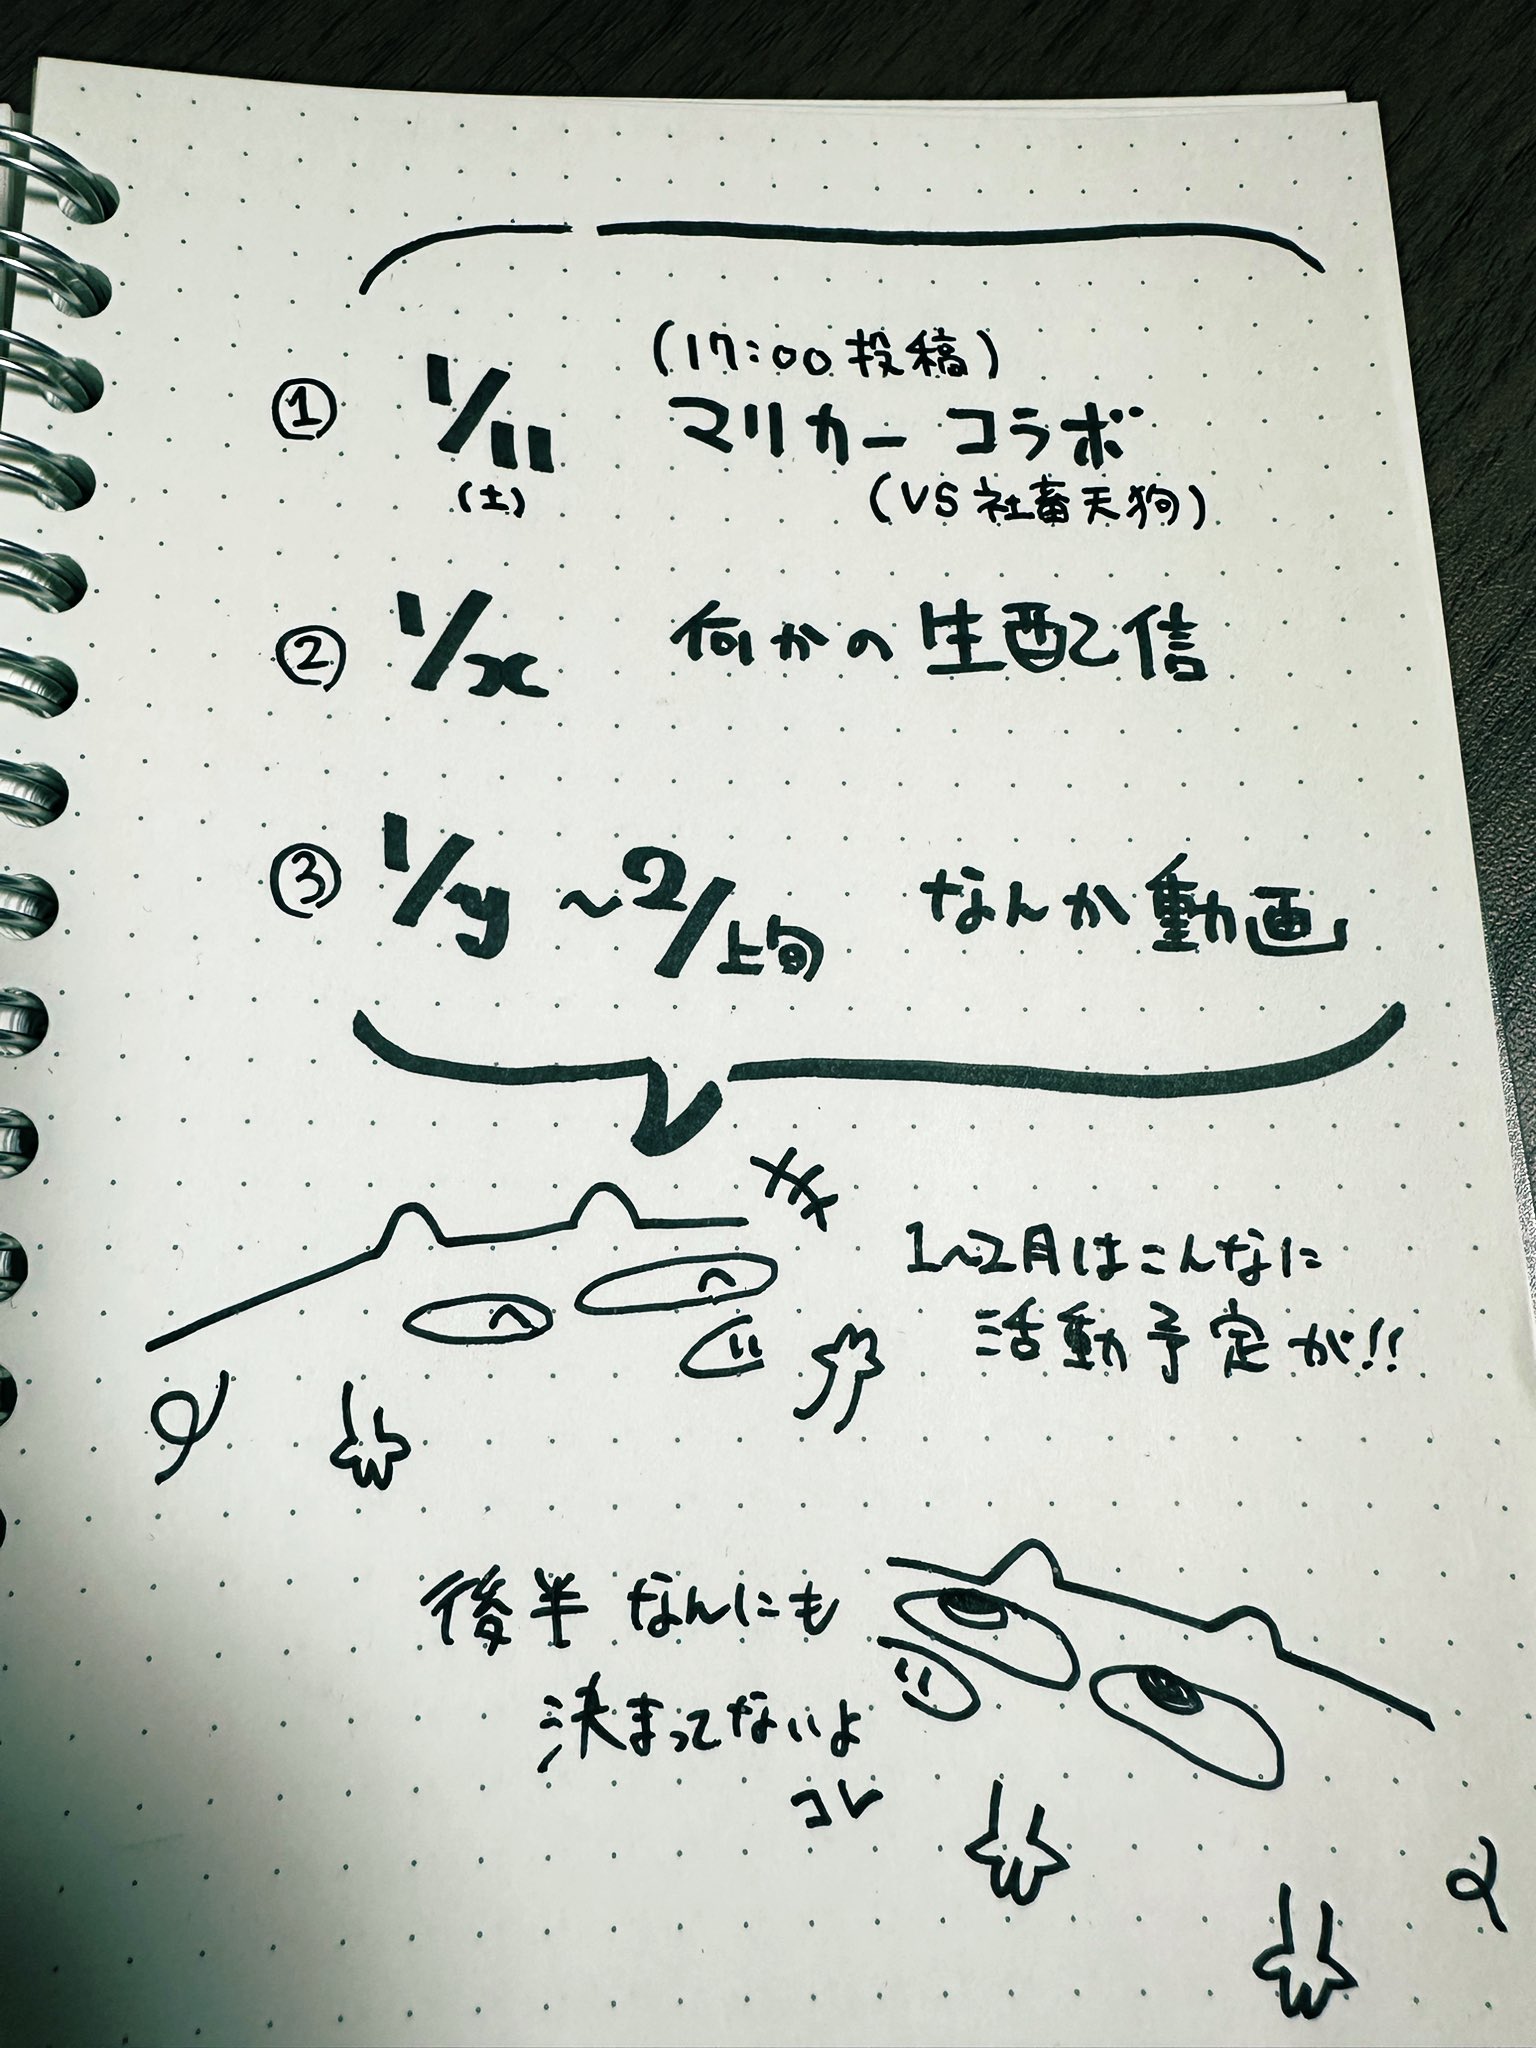 (17:00 投稿)
① 1/11 マリカー コラボ
(土) (VS 社畜天狗)
② 1/x 何かの生配信
③ 1/y ~2/上旬 なんか動画
1~2月はこんなに
活動予定が!!
後半 なんにも
決まってないよ
コレ